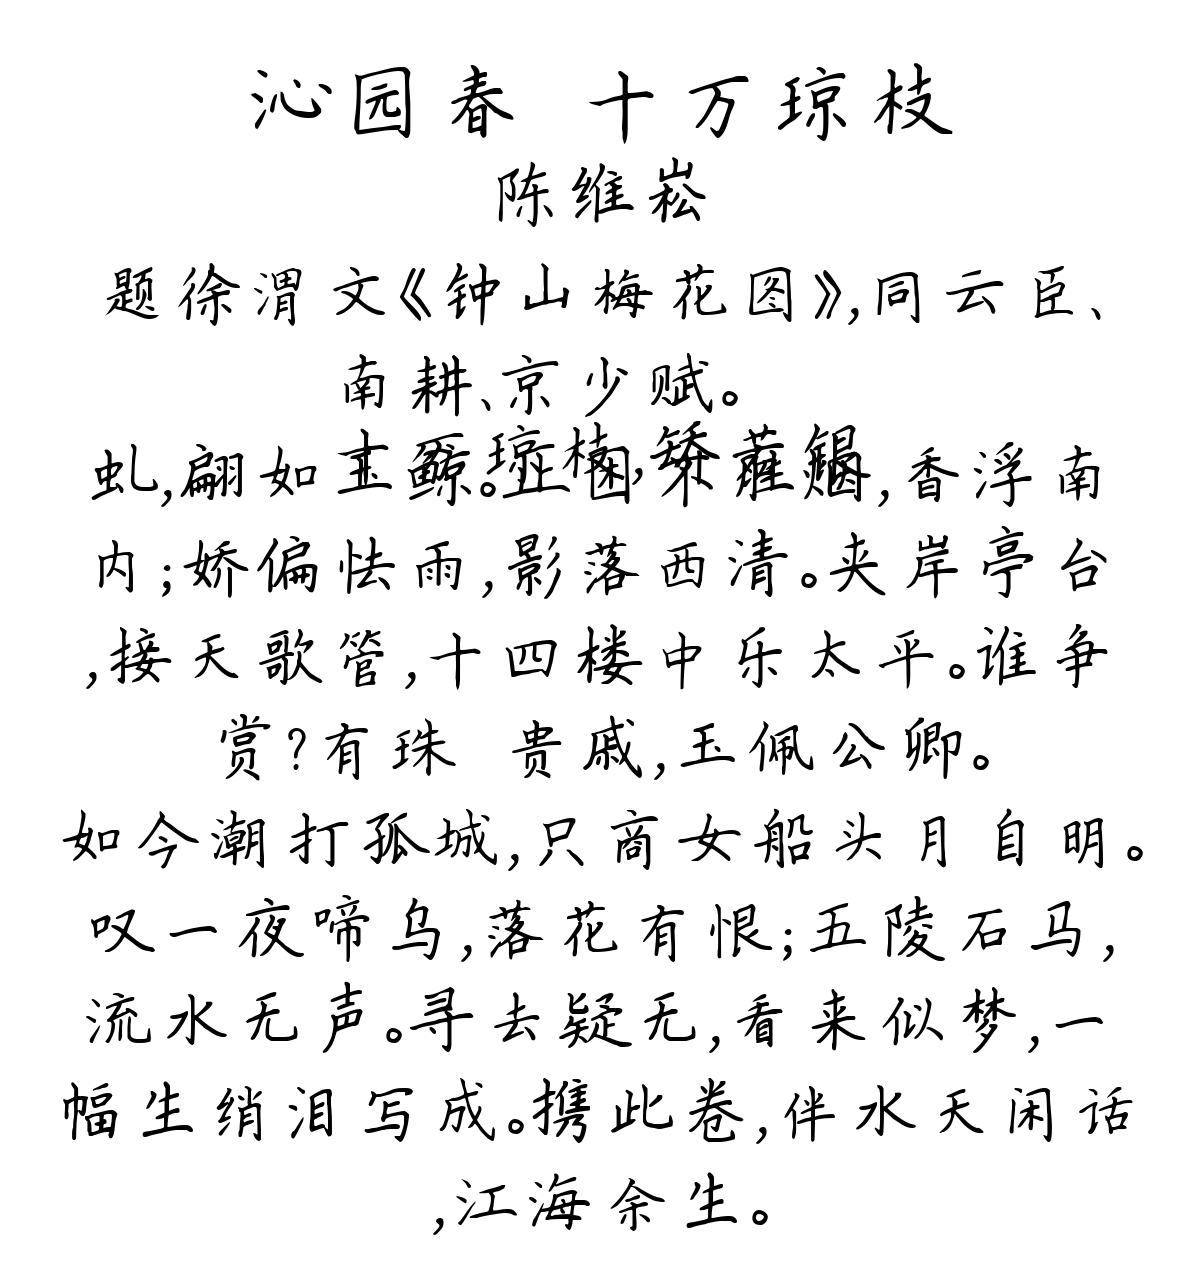 沁园春 十万琼枝
陈维崧
题徐渭文《钟山梅花图》,同云臣、
南耕、京少赋。
琼枝,矫
虬,翩如玉鲸。正困不 ,香浮南
内;娇偏怯雨,影落西清。夹岸亭台
,接天歌管,十四楼中乐太平。谁争
赏?有珠 贵戚,玉佩公卿。
如今潮打孤城,只商女船头月自明。
叹一夜啼乌,落花有恨;五陵石马,
流水无声。寻去疑无,看来似梦,一
幅生绡泪写成。携此卷,伴水天闲话
,江海余生。